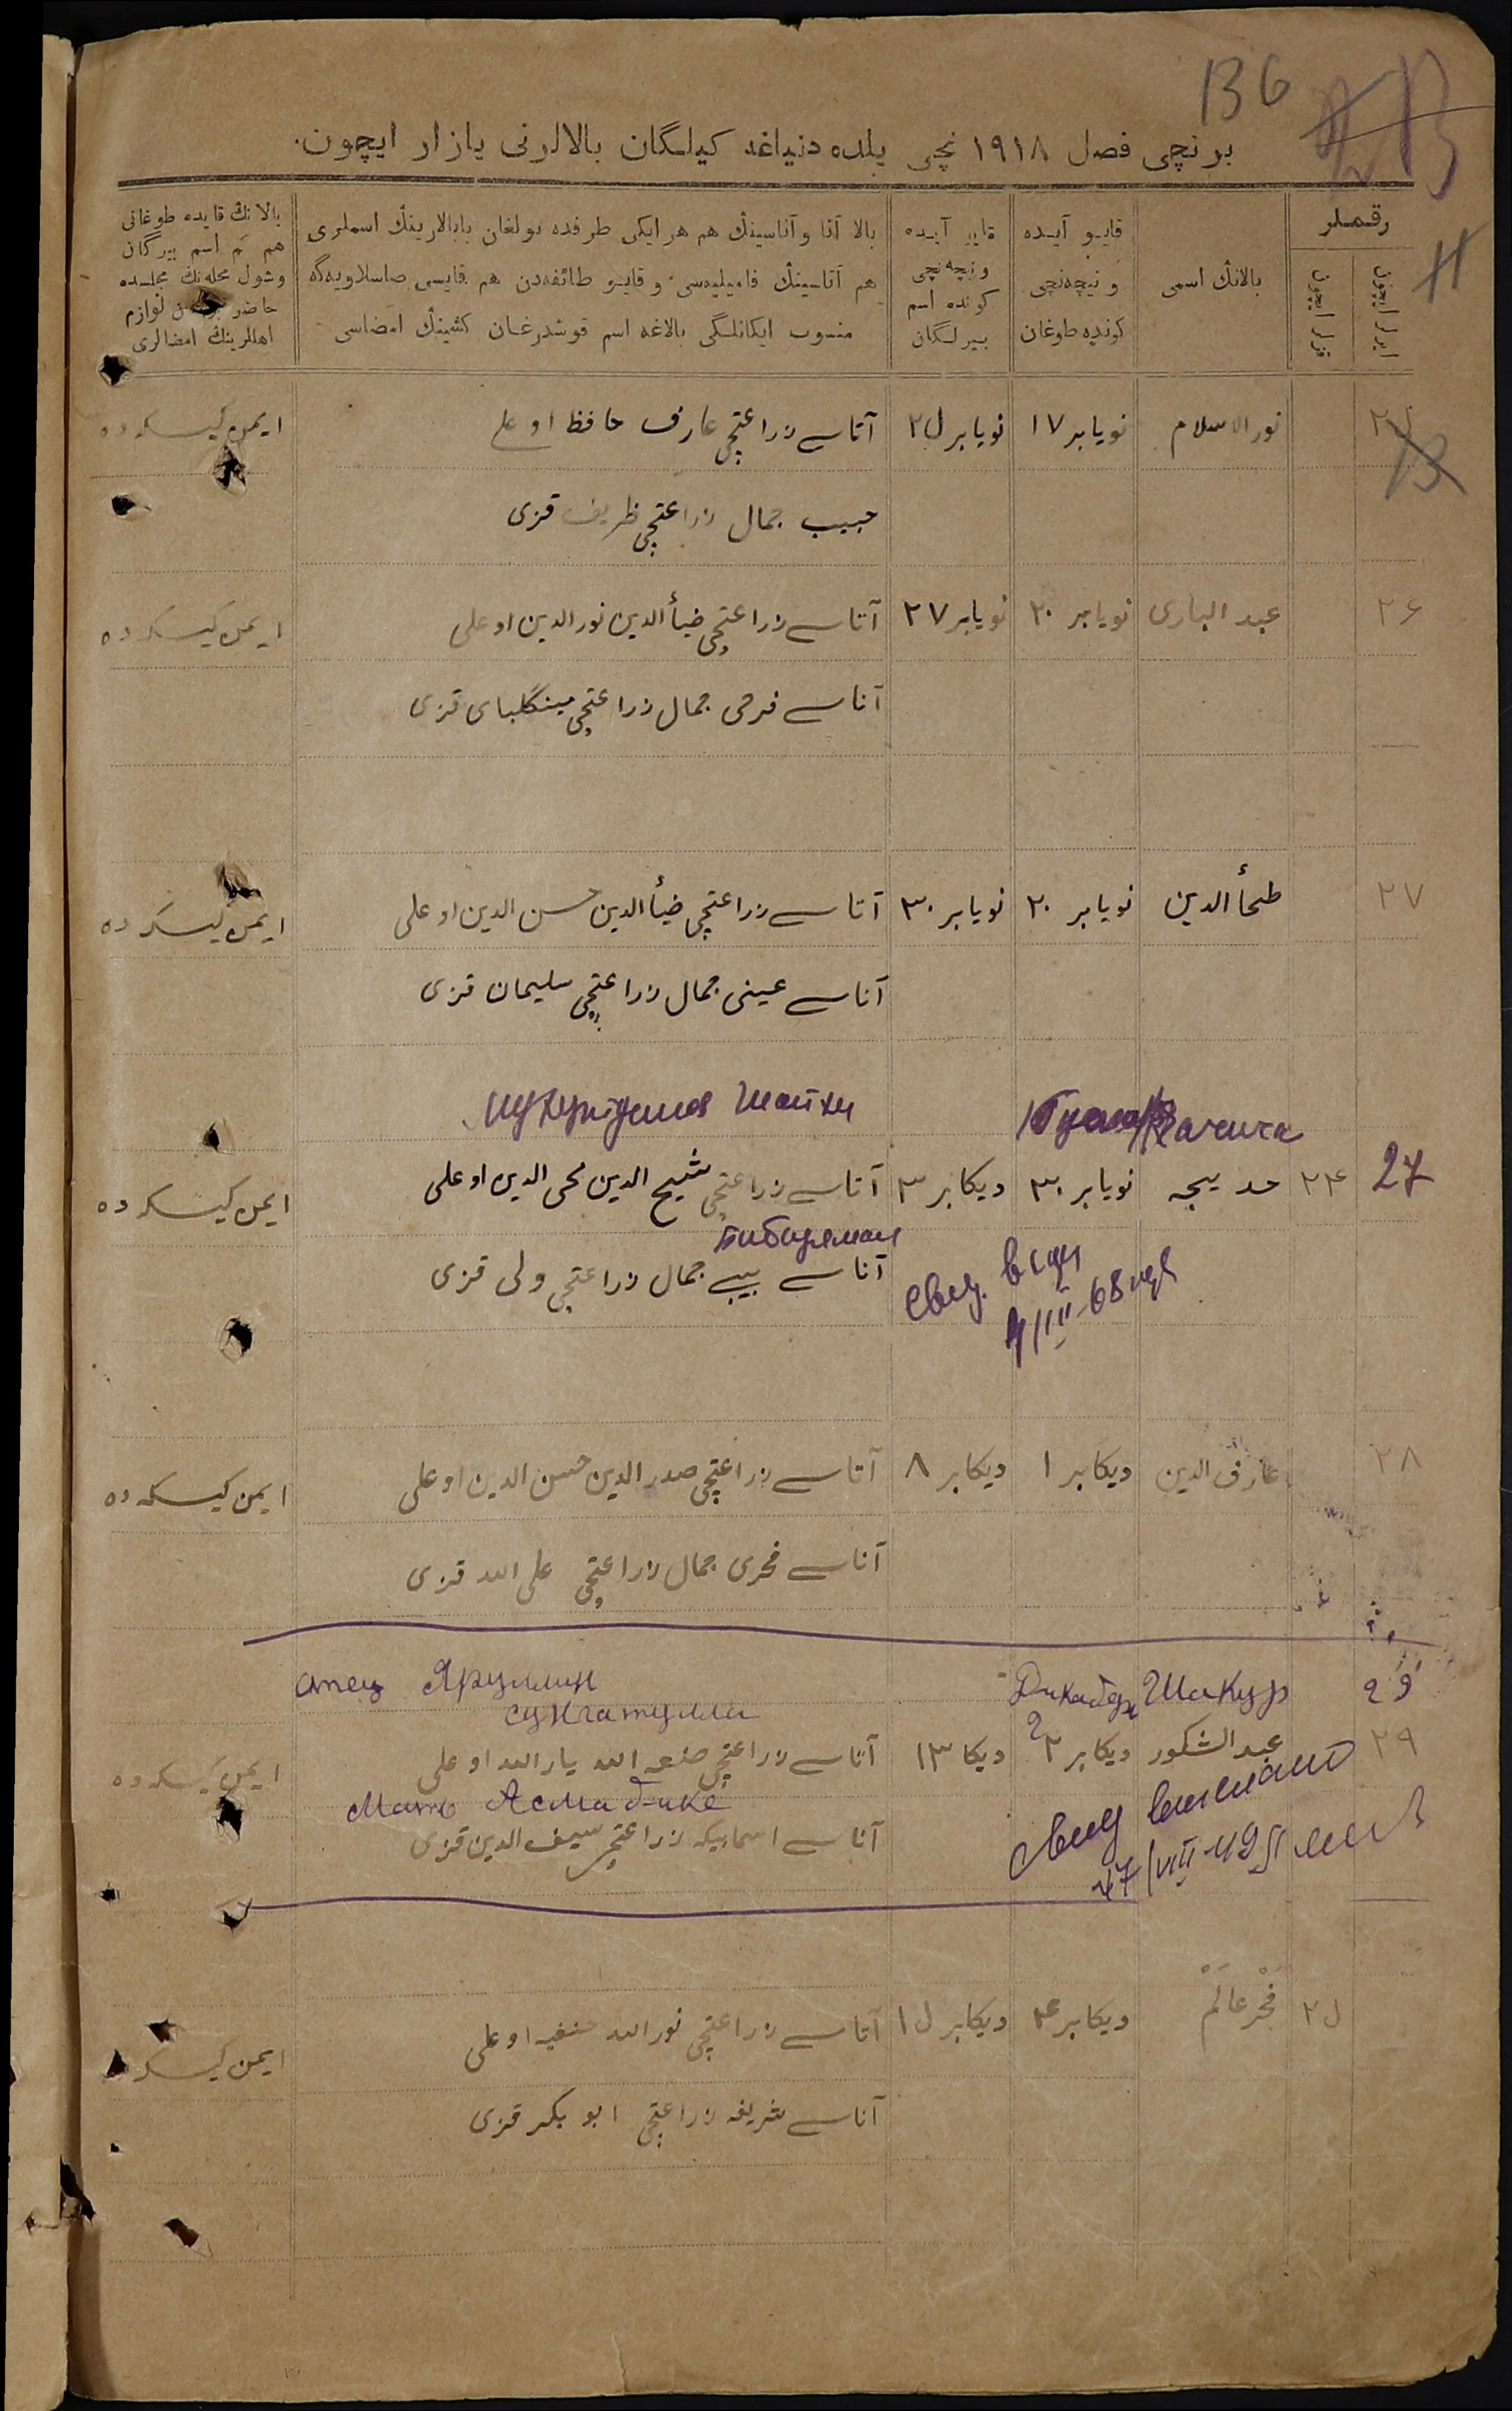 136
برنچی فصل ۱۹۱۸ نچی یلده دنیاغه کیلگان بالالرنی یازار ایچون.
رقملر
ایرلر ایچون
قزلر ایچون
بالانڭ اسمی
قایو آیده
و نیچه‌نچی
کونده طوغان
قایو آیده
و نیچه‌نچی
کونده اسم
بیرلگان
بالا آتا و آناسینڭ هم هر ایکی طرفده بولغان بابالارینڭ اسملری
هم آتاسینڭ فامیلیه‌سی و قایو طائفه‌دن هم قایسی صاسلاویه‌گه
منسوب ایکانلگی بالاغه اسم قوشدرغان کشینڭ امضاسی
بالانڭ قایده طوغانی
هم اسم بیرگان
وشول محله‌نڭ مجلسده
حاضر
اهللرینڭ امضالری
نورالاسلام نویابر ۱۷ نویابر ۲۵ آتاسی زراعتچی عارف حافظ اوغلی ایمن کیسکه ده
حبیب جمال زراعتچی ظریف قزی
۲۶ عبد الباری نویابر ۲۰ نویابر ۲۷ آتاسی زراعتچی ضیأالدین نورالدین اوغلی ایمن کیسکه ده
آناسی فرحی جمال زراعتچی مینگلبای قزی
۲۷ نویابر ۲۰ نویابر ۳۰ آتاسی زراعتچی ضیأالدین حسن الدین اوغلی ایمن کیسکه ده
آناسی عینی جمال زراعتچی سلیمان قزی
27 ۲۴ خدیجه نویابر ۳۰ دیکابر ۳ آتاسی زراعتچی شیخ الدین محی الدین اوغلی ایمن کیسکه ده
آناسی بیبی جمال زراعتچی ولی قزی
۲۸ عارف الدین دیکابر ۱ دیکابر ۸ آتاسی زراعتچی صدرالدین حسن الدین اوغلی ایمن کیسکه ده
آناسی فخری جمال زراعتچی علی الله قزی
29 Шакур Дикабер 2 отец Яруллин
сунгатулла
۲۹ عبد الشکور دیکابر ۲ دیکا ۱۳ آتاسی زراعتچی صنعه الله یارالله اوغلی ایمن کیسکه ده
Мать Асмабике
آناسی اسمابیکه زراعتچی سیف الدین قزی
۲۵ فخرعالم دیکابر ۴ دیکابر ۱۵ آتاسی زراعتچی نورالله اوغلی ایمن کیسکه ده
آناسی شریفه زراعتچی ابو بکر قزی